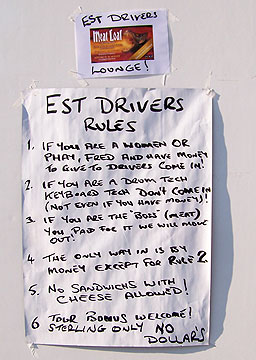 EST DRIVERS
Meat Loaf
LOUNGE!
EST DRIVERS
RULES
1. IF YOU ARE A WOMEN OR
PHAY, FRED AND HAVE MONEY
TO GIVE TO DRIVERS COME IN!
2. IF YOU ARE A DRUM TECH
KEYBOARD TECH DON'T COME IN
(NOT EVEN IF YOU HAVE MONEY)!
3. IF YOU ARE THE "BOSS" (MEAT)
YOU PAID FOR IT WE WILL MOVE
OUT!
4 THE ONLY WAY IN IS BY
MONEY EXCEPT FOR RULE 2.
5. NO SANDWICHS WITH
CHEESE ALLOWED!
6 TOUR BONUS WELCOME!
STERLING ONLY NO
DOLLARS